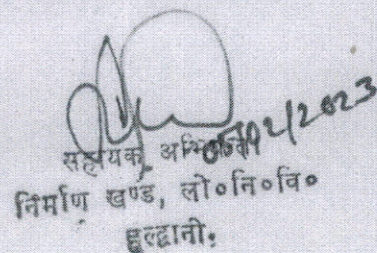 02/2023
सहायक
निर्माण खण्ड, लो०नि०वि०
हल्द्वानी.